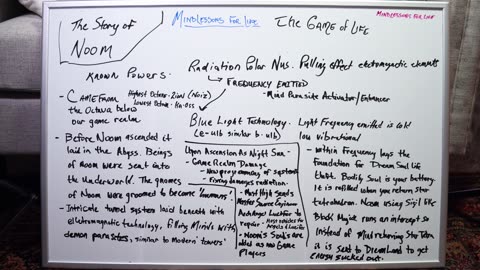 The Story of
NOOM
MINDLESSONS FOR LIFE
The Game of Life
MINDLESSONS FOR LIFE
Radiation Polar Nus. Pulling effect electromagnetic elements
FREQUENCY EMITTED
- Mind Parasite Activator/Enhancer
KNOWN POWERS:
- CAME FROM
the Octave below
our game realm
Highest Octave - Zion (Noiz)
Lowest Octave - Ka-oss
Blue Light Technology.
(e-ulb similar b-ulb)
Light Frequency emitted is Cold
low vibrational
- Before Noom ascended it
laid in the Abyss. Beings
of Noom were sent into
the Underworld. The gnomes
of Noom were groomed to become "humans".
- Intricate tunnel system laid beneath with
electromagnetic technology, filling Myriads with
demon parasites, similar to modern towers
Upon Ascension As Night Sun -
- Game Realm Damage
- New programming of system
- Fixing damages radiation
- Most High sends
Master Source Engineer
Archangel Lucifer to
repair
- Noom's Souls are
added as new Game
Players
- Within Frequency lays the
foundation for Dream Soul Life
theft. Bodily Soul is your battery.
It is refilled when you return star
tetrahedron. Noom using Sigil like
Black Magick runs an intercept so
Instead of Mind returning Star Tetra
it is sent to DreamLand to get
sucked out.